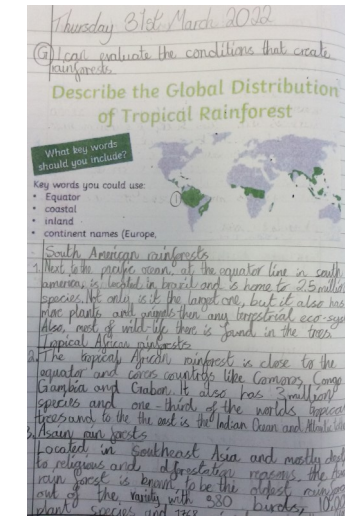 Thursday 31st March 2022
G I can evaluate the conditions that create
rainforests
Describe the Global Distribution
of Tropical Rainforest
What key words
should you include?
Key words you could use:
• Equator
• coastal
• inland
• continent names (Europe,
1
South American rainforests
1. Next to the pacific ocean, at the equator line in south
america, is located in brazil and is home to 2.5 million
species. Not only is it the largest one, but it also has
more plants and animals then any terrestrial eco-sys
Also, most of wild-life there is found in the trees.
Tropical African rainforsts
2. The tropical African rainforest is close to the
equator and covers countrys like Comoros, Congo
Gambia and Gabon. It also has 3 million
species and one-third of the worlds tropical
trees and to the the east is the Indian Ocean and Atlantic
3. Asain rain forsts
Located in Southeast Asia and mostly
to religious and dforstation reasons, the
rain forest is known to be the oldest rainfor
out of the variety with 380 birds, 10,000
plant species and